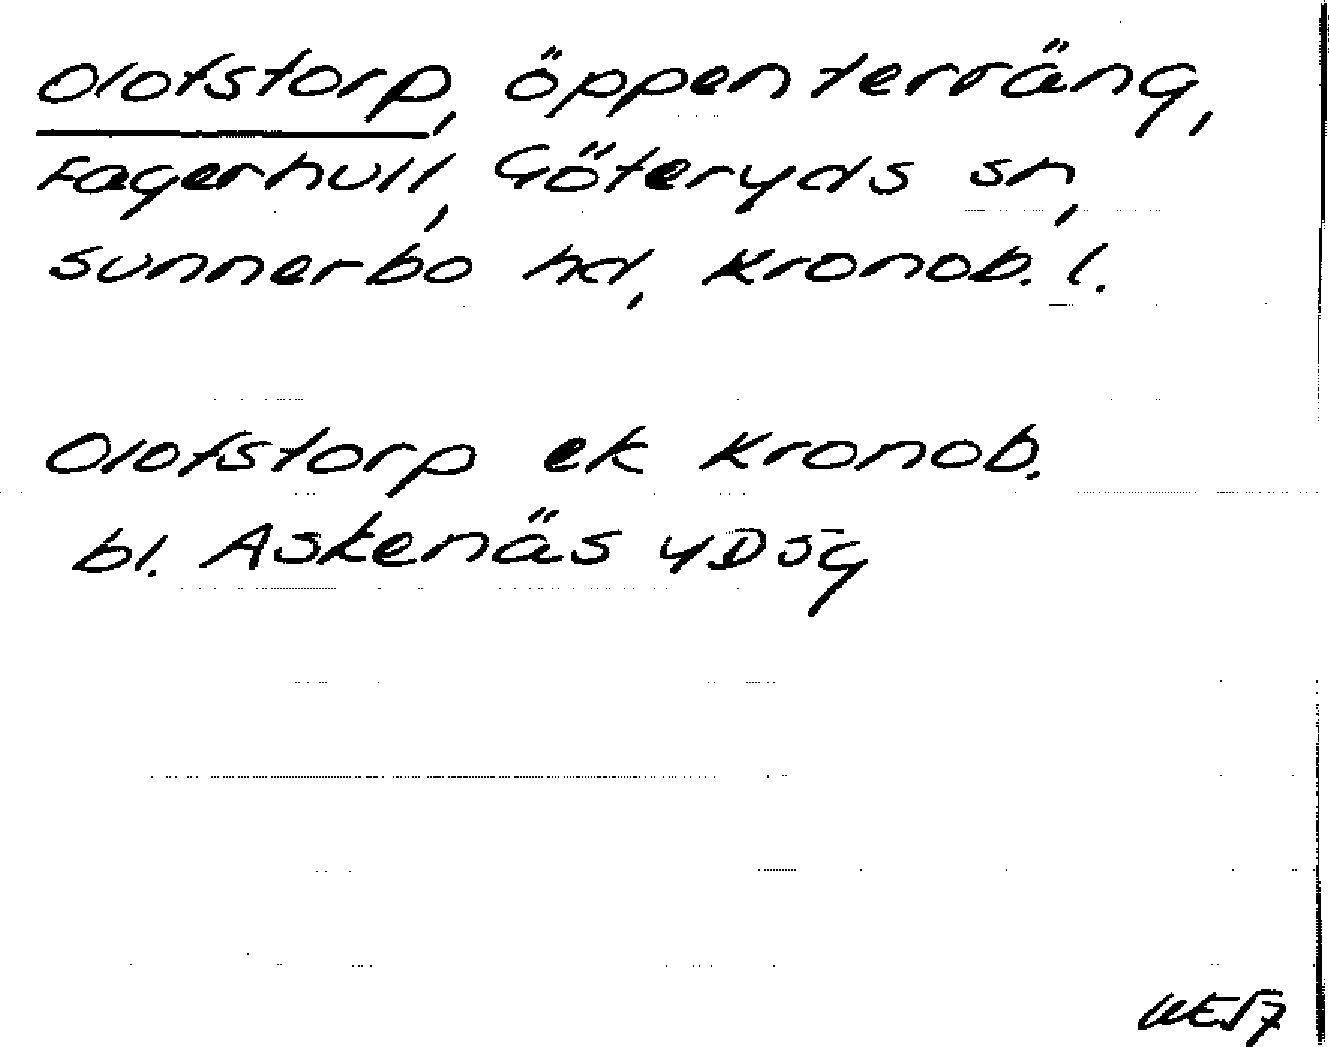 Olofstorp, öppen terräng,
Fagerhult, Göteryds sn,
Sunnerbo hd, Kronob. l.
Olofstorp ek Kronob.
bl. Askenäs 4D5g